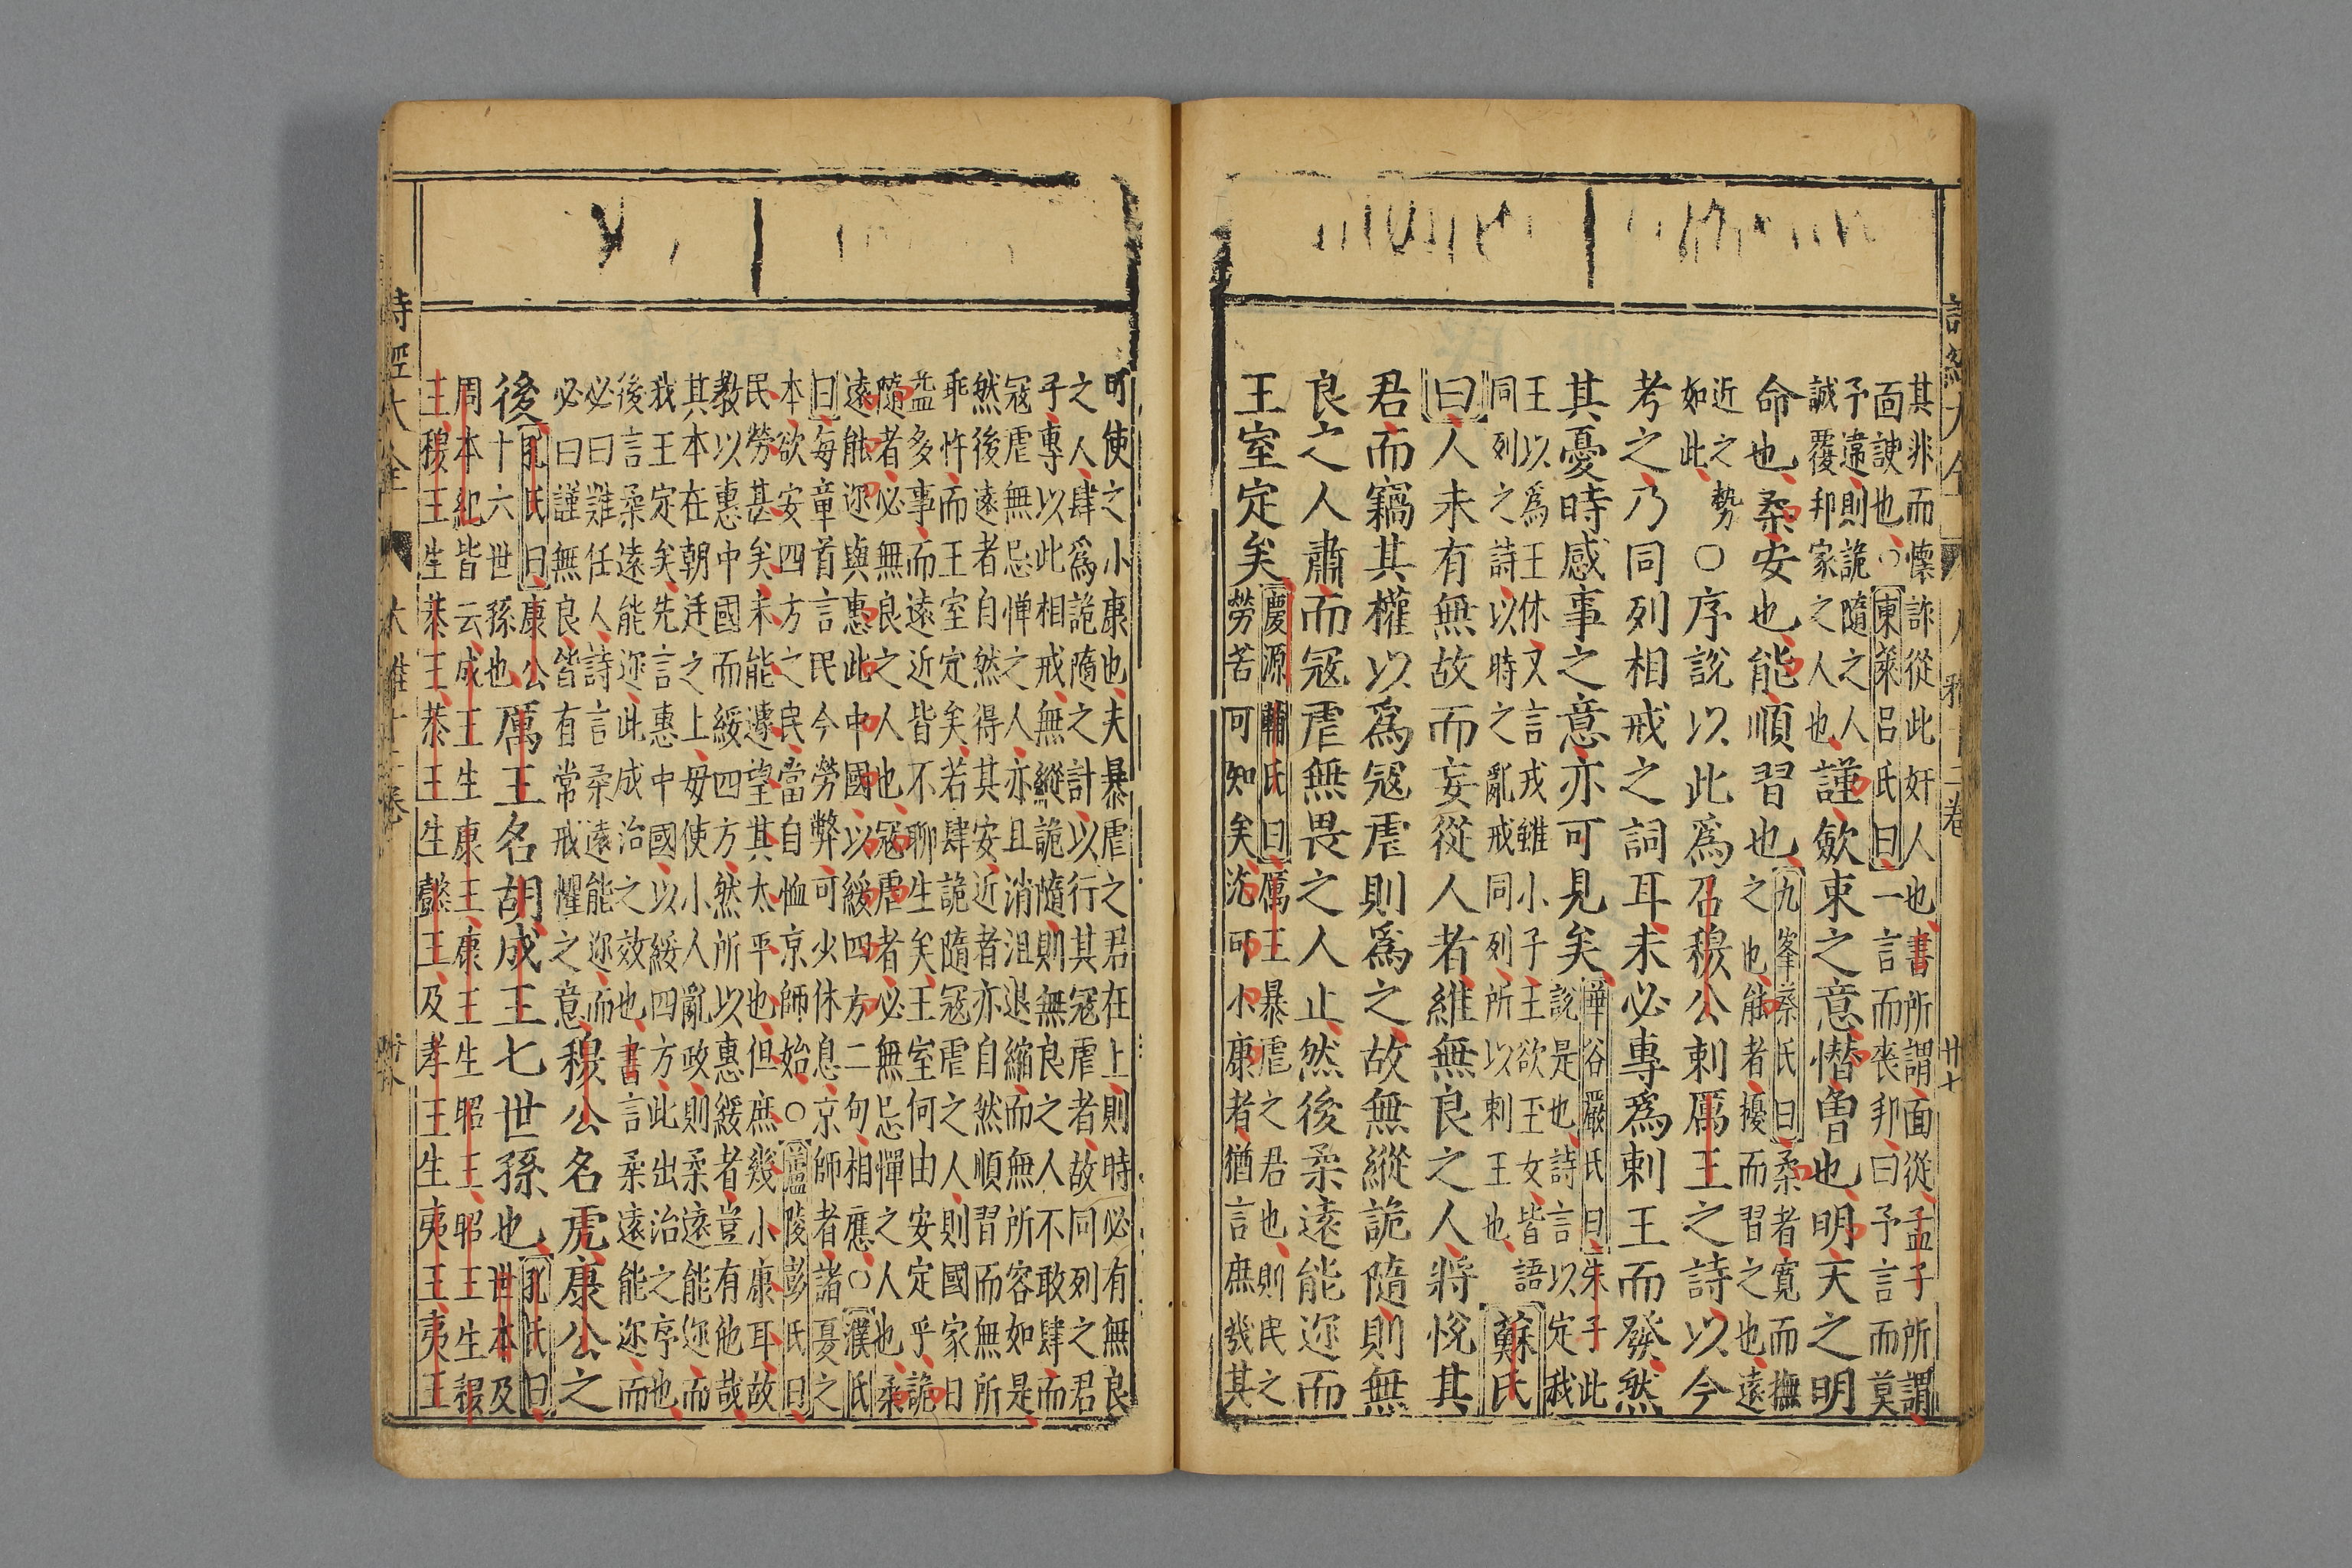 其非而懷詐從此奸人也書所謂面從孟子所謂
面諛也○東萊呂氏曰一言而喪邦曰予言而莫
予違則詭隨之人
誠覆邦家之人也
謹歛束之意憯曾也明天之明
命也柔安也能順習也
九峯蔡氏曰柔者寬而撫
之也能者擾而習之也遠
近之勢
如此
○序說以此為召穆公刺厲王之詩以今
考之乃同列相戒之詞耳未必專為刺王而發然
其憂時感事之意亦可見矣
華谷嚴氏曰朱子此
說是也詩言以定我
王以為王休又言戎雖小子王欲玉女皆語
同列之詩以時之亂戒同列所以刺王也
蘇氏
曰人未有無故而妄從人者維無良之人將悅其
君而竊其權以為寇虐則為之故無縱詭隨則無
良之人肅而寇虐無畏之人止然後柔遠能邇而
王室定矣
慶源輔氏曰厲王暴虐之君也則民之
勞苦可知矣汔可小康者猶言庶幾其
可使之小康也夫暴虐之君在上則時必有無良
之人肆為詭隨之計以行其寇虐者故同列之君
子專以此相戒無縱詭隨則無良之人不敢肆而
寇虐無忌憚之人亦且消沮退縮而無所容如是
然後遠者自然得其安近者亦自然順習而無所
乖忤而王室定矣若肆詭隨寇虐之人則國家日
益多事而遠近皆不聊生矣王室何由安定乎詭
隨者必無良之人也寇虐者必無忌憚之人也柔
遠能邇與惠此中國以綏四方二句相應○濮氏
曰每章首言民今勞弊可少休息京師者諸憂之
本欲安四方之民當自恤京師始○廬陵彭氏曰
民勞甚矣未能遽望其太平也但庶幾小康耳故
教以惠中國而綏四方然所以惠緩者豈有他哉
其本在朝廷之上毋使小人亂政則柔遠能邇而
我王定矣先言惠中國以綏四方此出治之序也
後言柔遠能邇此成治之效也書言柔遠能邇而
必曰難任人詩言柔遠能邇而
必曰謹無良皆有常戒懼之意
穆公名虎康公之
後
孔氏曰康公
十六世孫也
厲王名胡成王七世孫也
孔氏曰
世本及
周本紀皆云成王生康王康王生昭王昭王生穆
王穆王生恭王恭王生懿王及孝王生夷王夷王
詩經大全 大雅十二卷